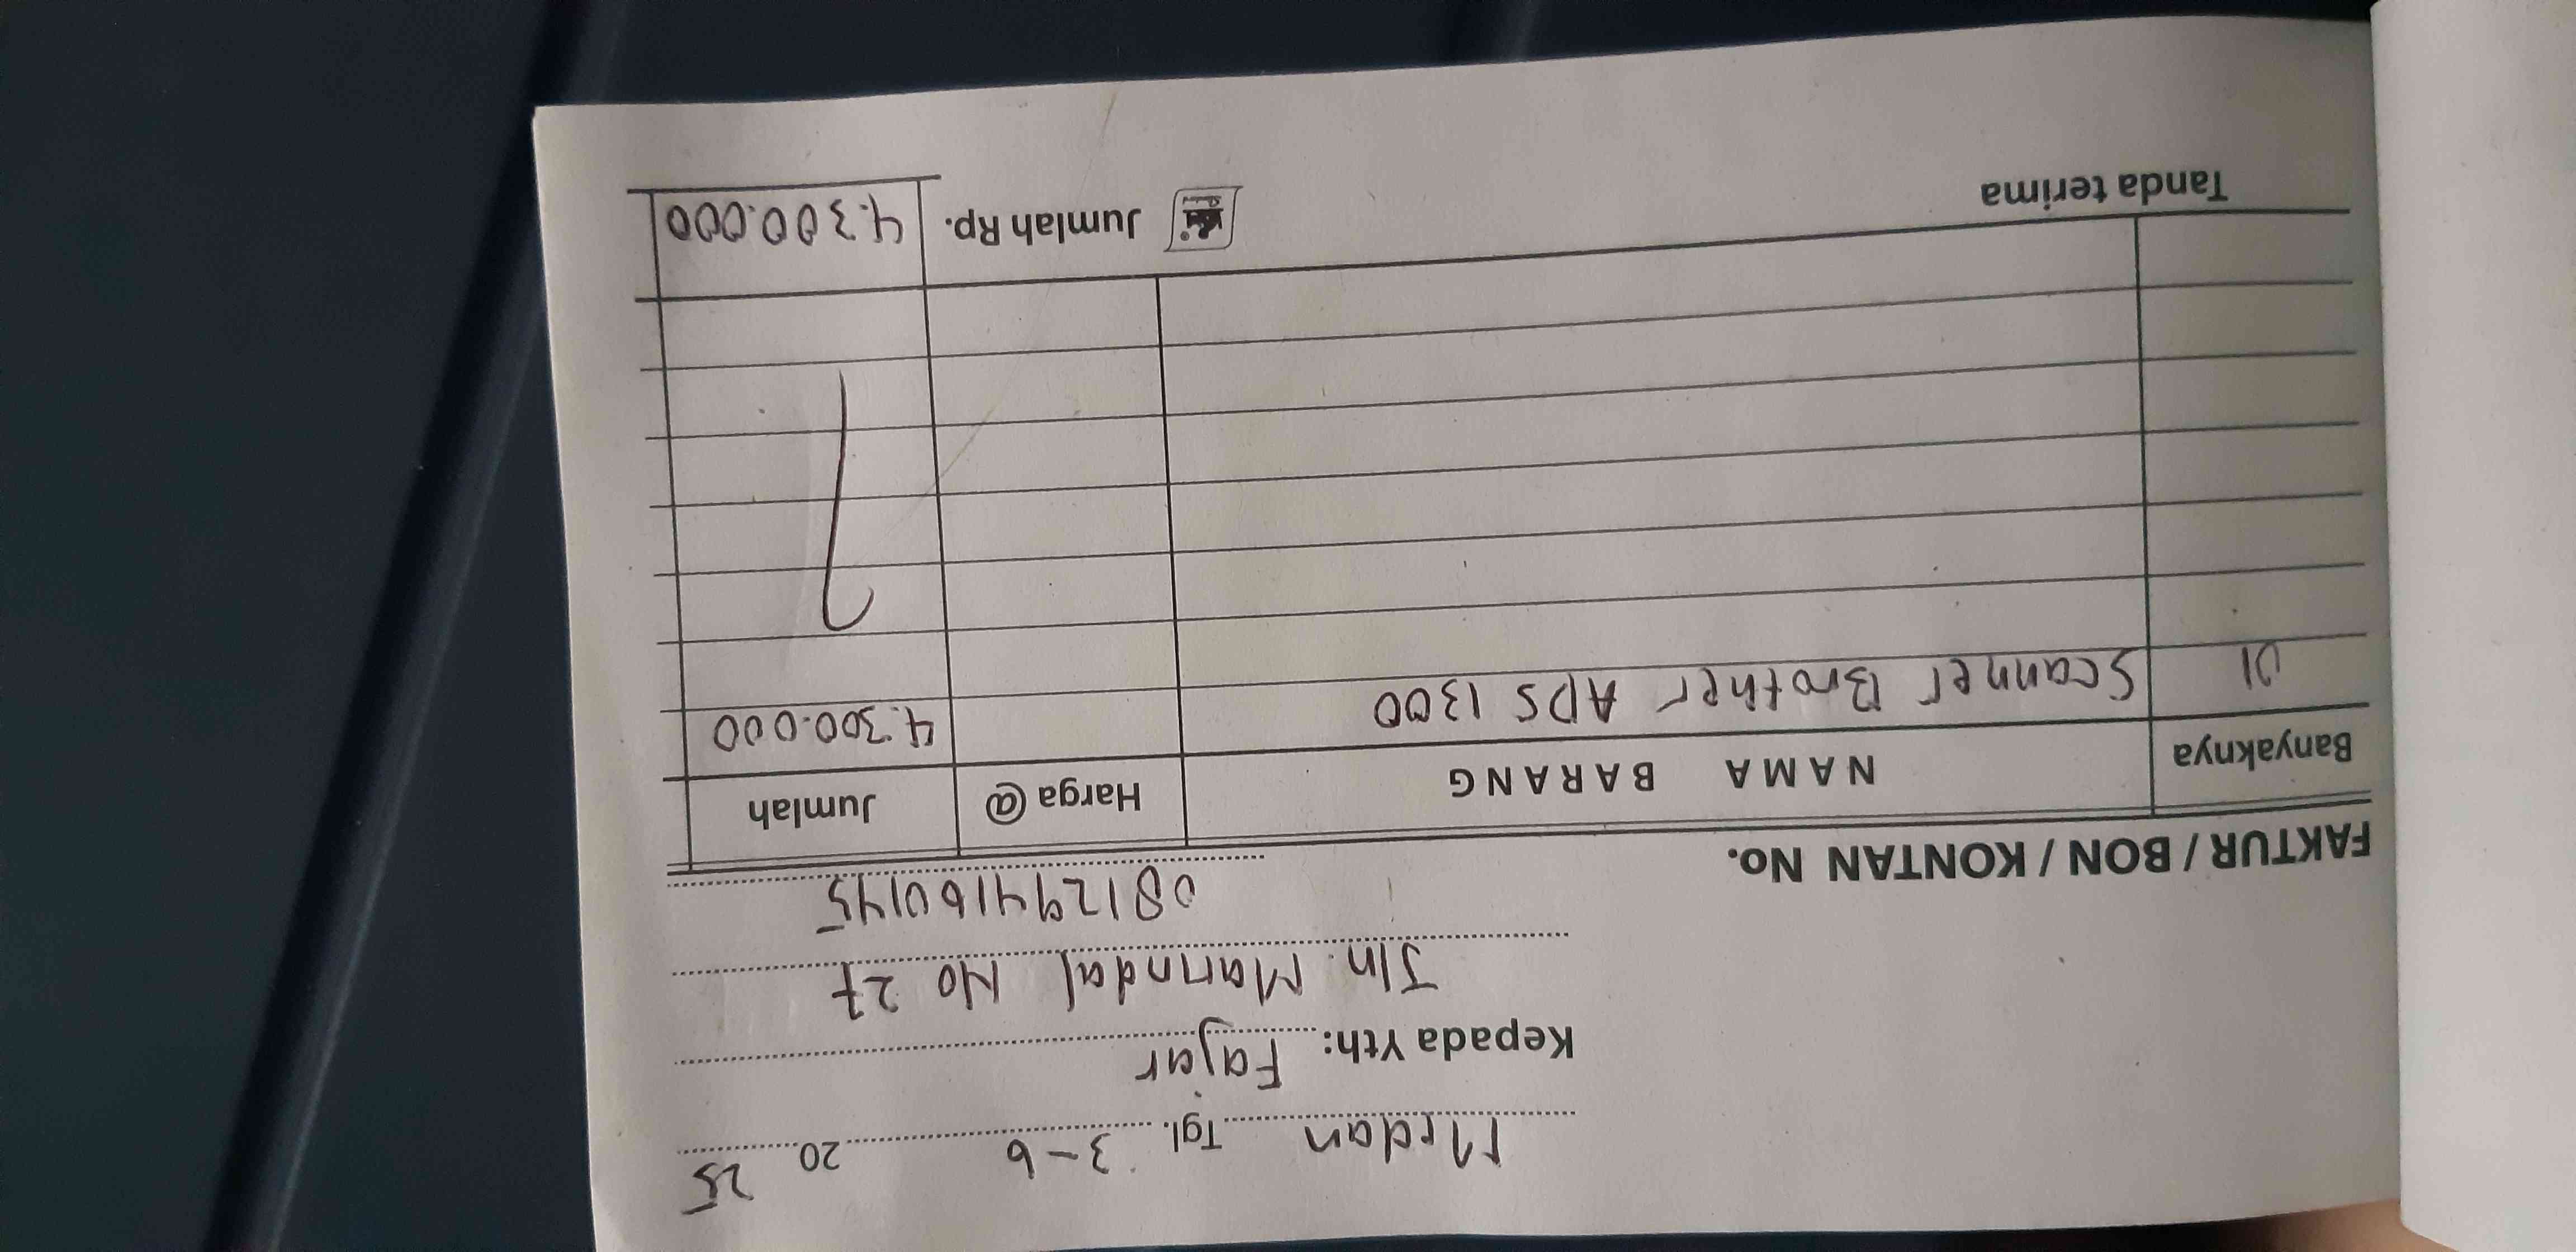 Medan Tgl. 3-6 20 25
Kepada Yth: Fajar
Jln. Marindal No 27
081294160145
FAKTUR / BON / KONTAN No.
Banyaknya NAMA BARANG Harga @ Jumlah
01 Scanner Brother ADS 1300 4.300.000
Tanda terima Jumlah Rp. 4.300.000